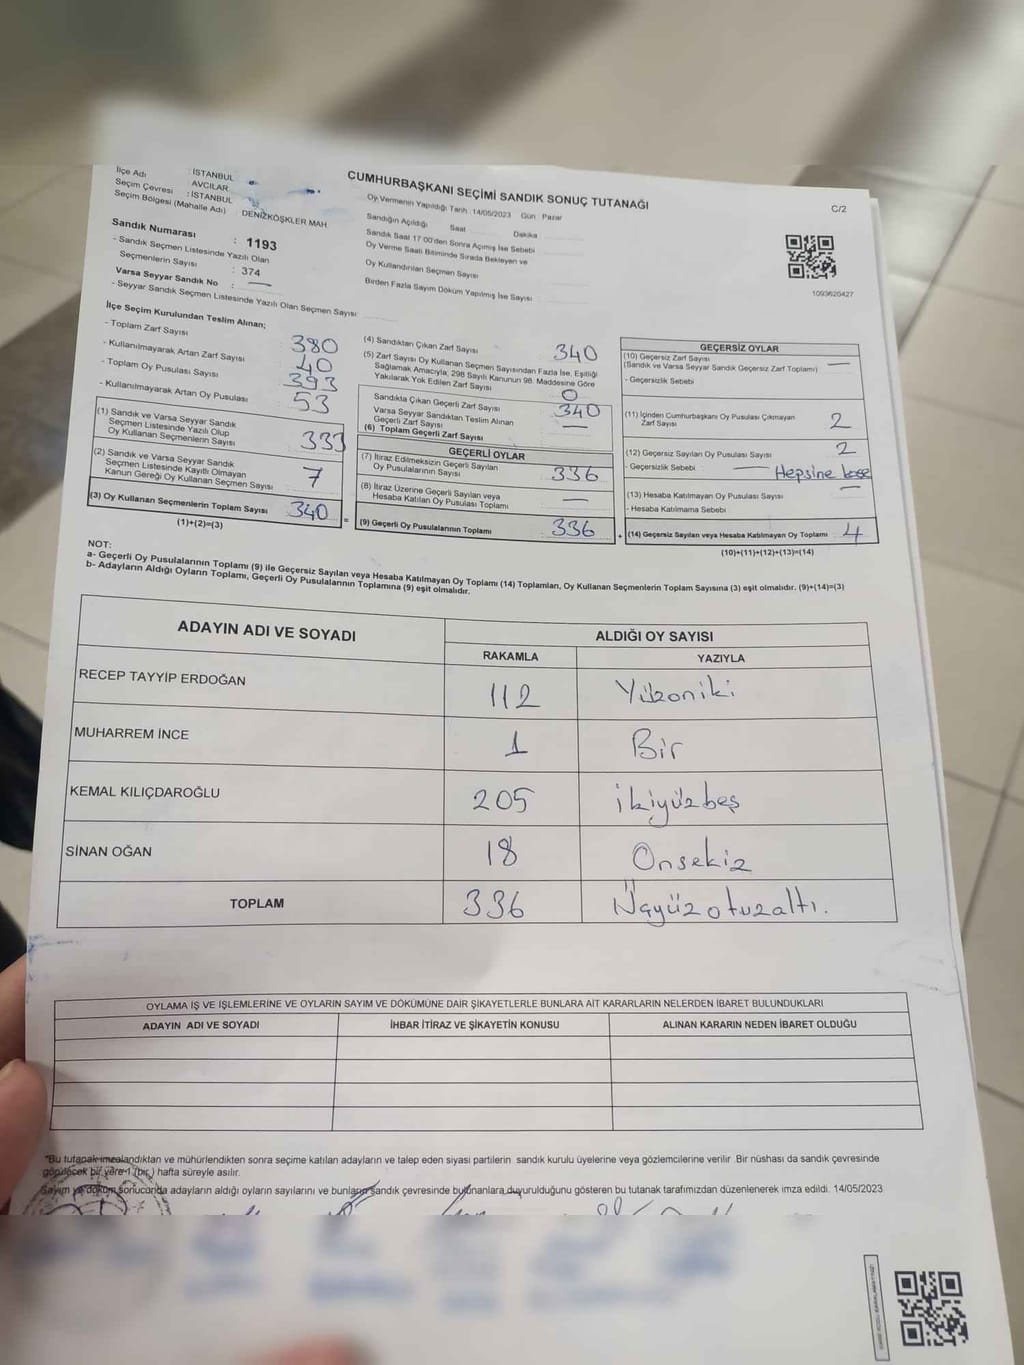 CUMHURBAŞKANI SEÇİMİ SANDIK SONUÇ TUTANAĞI
C/2
İlçe Adı : İSTANBUL
Seçim Çevresi : AVCILAR
Seçim Bölgesi (Mahalle Adı) : İSTANBUL
DENİZKÖŞKLER MAH.
Sandık Numarası : 1193
- Sandık Seçmen Listesinde Yazılı Olan
Seçmenlerin Sayısı : 374
Varsa Seyyar Sandık No : —
- Seyyar Sandık Seçmen Listesinde Yazılı Olan Seçmen Sayısı
Oy Vermenin Yapıldığı Tarih 14/05/2023 Gün Pazar
Sandığın Açıldığı Saat Dakika
Sandık Saat 17.00'den Sonra Açımış İse Sebebi
Oy Verme Saati Bitiminde Sırada Bekleyen ve
Oy Kullandırılan Seçmen Sayısı
Birden Fazla Sayım Döküm Yapılmış İse Sayısı
1093620427
İlçe Seçim Kurulundan Teslim Alınan;
- Toplam Zarf Sayısı 380
- Kullanılmayarak Artan Zarf Sayısı 40
- Toplam Oy Pusulası Sayısı 393
- Kullanılmayarak Artan Oy Pusulası 53
(1) Sandık ve Varsa Seyyar Sandık
Seçmen Listesinde Yazılı Olup
Oy Kullanan Seçmenlerin Sayısı 333
(2) Sandık ve Varsa Seyyar Sandık
Seçmen Listesinde Kayıtlı Olmayan
Kanun Gereği Oy Kullanan Seçmen Sayısı 7
(3) Oy Kullanan Seçmenlerin Toplam Sayısı 340
(1)+(2)=(3)
=
(4) Sandıktan Çıkan Zarf Sayısı 340
(5) Zarf Sayısı Oy Kullanan Seçmen Sayısından Fazla İse, Eşitliği
Sağlamak Amacıyla; 298 Sayılı Kanunun 98. Maddesine Göre
Yakılarak Yok Edilen Zarf Sayısı 0
Sandıkta Çıkan Geçerli Zarf Sayısı 340
Varsa Seyyar Sandıktan Teslim Alınan
Geçerli Zarf Sayısı —
(6) Toplam Geçerli Zarf Sayısı
GEÇERLİ OYLAR
(7) İtiraz Edilmeksizin Geçerli Sayılan
Oy Pusulalarının Sayısı 336
(8) İtiraz Üzerine Geçerli Sayılan veya
Hesaba Katılan Oy Pusulası Toplamı —
(9) Geçerli Oy Pusulalarının Toplamı 336
+
GEÇERSİZ OYLAR
(10) Geçersiz Zarf Sayısı
(Sandık ve Varsa Seyyar Sandık Geçersiz Zarf Toplamı) —
- Geçersizlik Sebebi
(11) İçinden Cumhurbaşkanı Oy Pusulası Çıkmayan
Zarf Sayısı 2
(12) Geçersiz Sayılan Oy Pusulası Sayısı 2
- Geçersizlik Sebebi — Hepsine
(13) Hesaba Katılmayan Oy Pusulası Sayısı —
- Hesaba Katılmama Sebebi
(14) Geçersiz Sayılan veya Hesaba Katılmayan Oy Toplamı 4
(10)+(11)+(12)+(13)=(14)
NOT:
a- Geçerli Oy Pusulalarının Toplamı (9) ile Geçersiz Sayılan veya Hesaba Katılmayan Oy Toplamı (14) Toplamları, Oy Kullanan Seçmenlerin Toplam Sayısına (3) eşit olmalıdır. (9)+(14)=(3)
b- Adayların Aldığı Oyların Toplamı, Geçerli Oy Pusulalarının Toplamına (9) eşit olmalıdır.
ADAYIN ADI VE SOYADI
ALDIĞI OY SAYISI
RAKAMLA YAZIYLA
RECEP TAYYİP ERDOĞAN 112 Yüzoniki
MUHARREM İNCE 1 Bir
KEMAL KILIÇDAROĞLU 205 ikiyüzbeş
SİNAN OĞAN 18 Onsekiz
TOPLAM 336 Üçyüzotuzaltı.
OYLAMA İŞ VE İŞLEMLERİNE VE OYLARIN SAYIM VE DÖKÜMÜNE DAİR ŞİKAYETLERLE BUNLARA AİT KARARLARIN NELERDEN İBARET BULUNDUKLARI
ADAYIN ADI VE SOYADI İHBAR İTİRAZ VE ŞİKAYETİN KONUSU ALINAN KARARIN NEDEN İBARET OLDUĞU
"Bu tutanak imzalandıktan ve mühürlendikten sonra seçime katılan adayların ve talep eden siyasi partilerin sandık kurulu üyelerine veya gözlemcilerine verilir .Bir nüshası da sandık çevresinde
görülecek bir yere 1 (bir) hafta süreyle asılır.
Sayım ve döküm sonucunda adayların aldığı oyların sayılarını ve bunların sandık çevresinde bulunanlara duyurulduğunu gösteren bu tutanak tarafımızdan düzenlenerek imza edildi. 14/05/2023